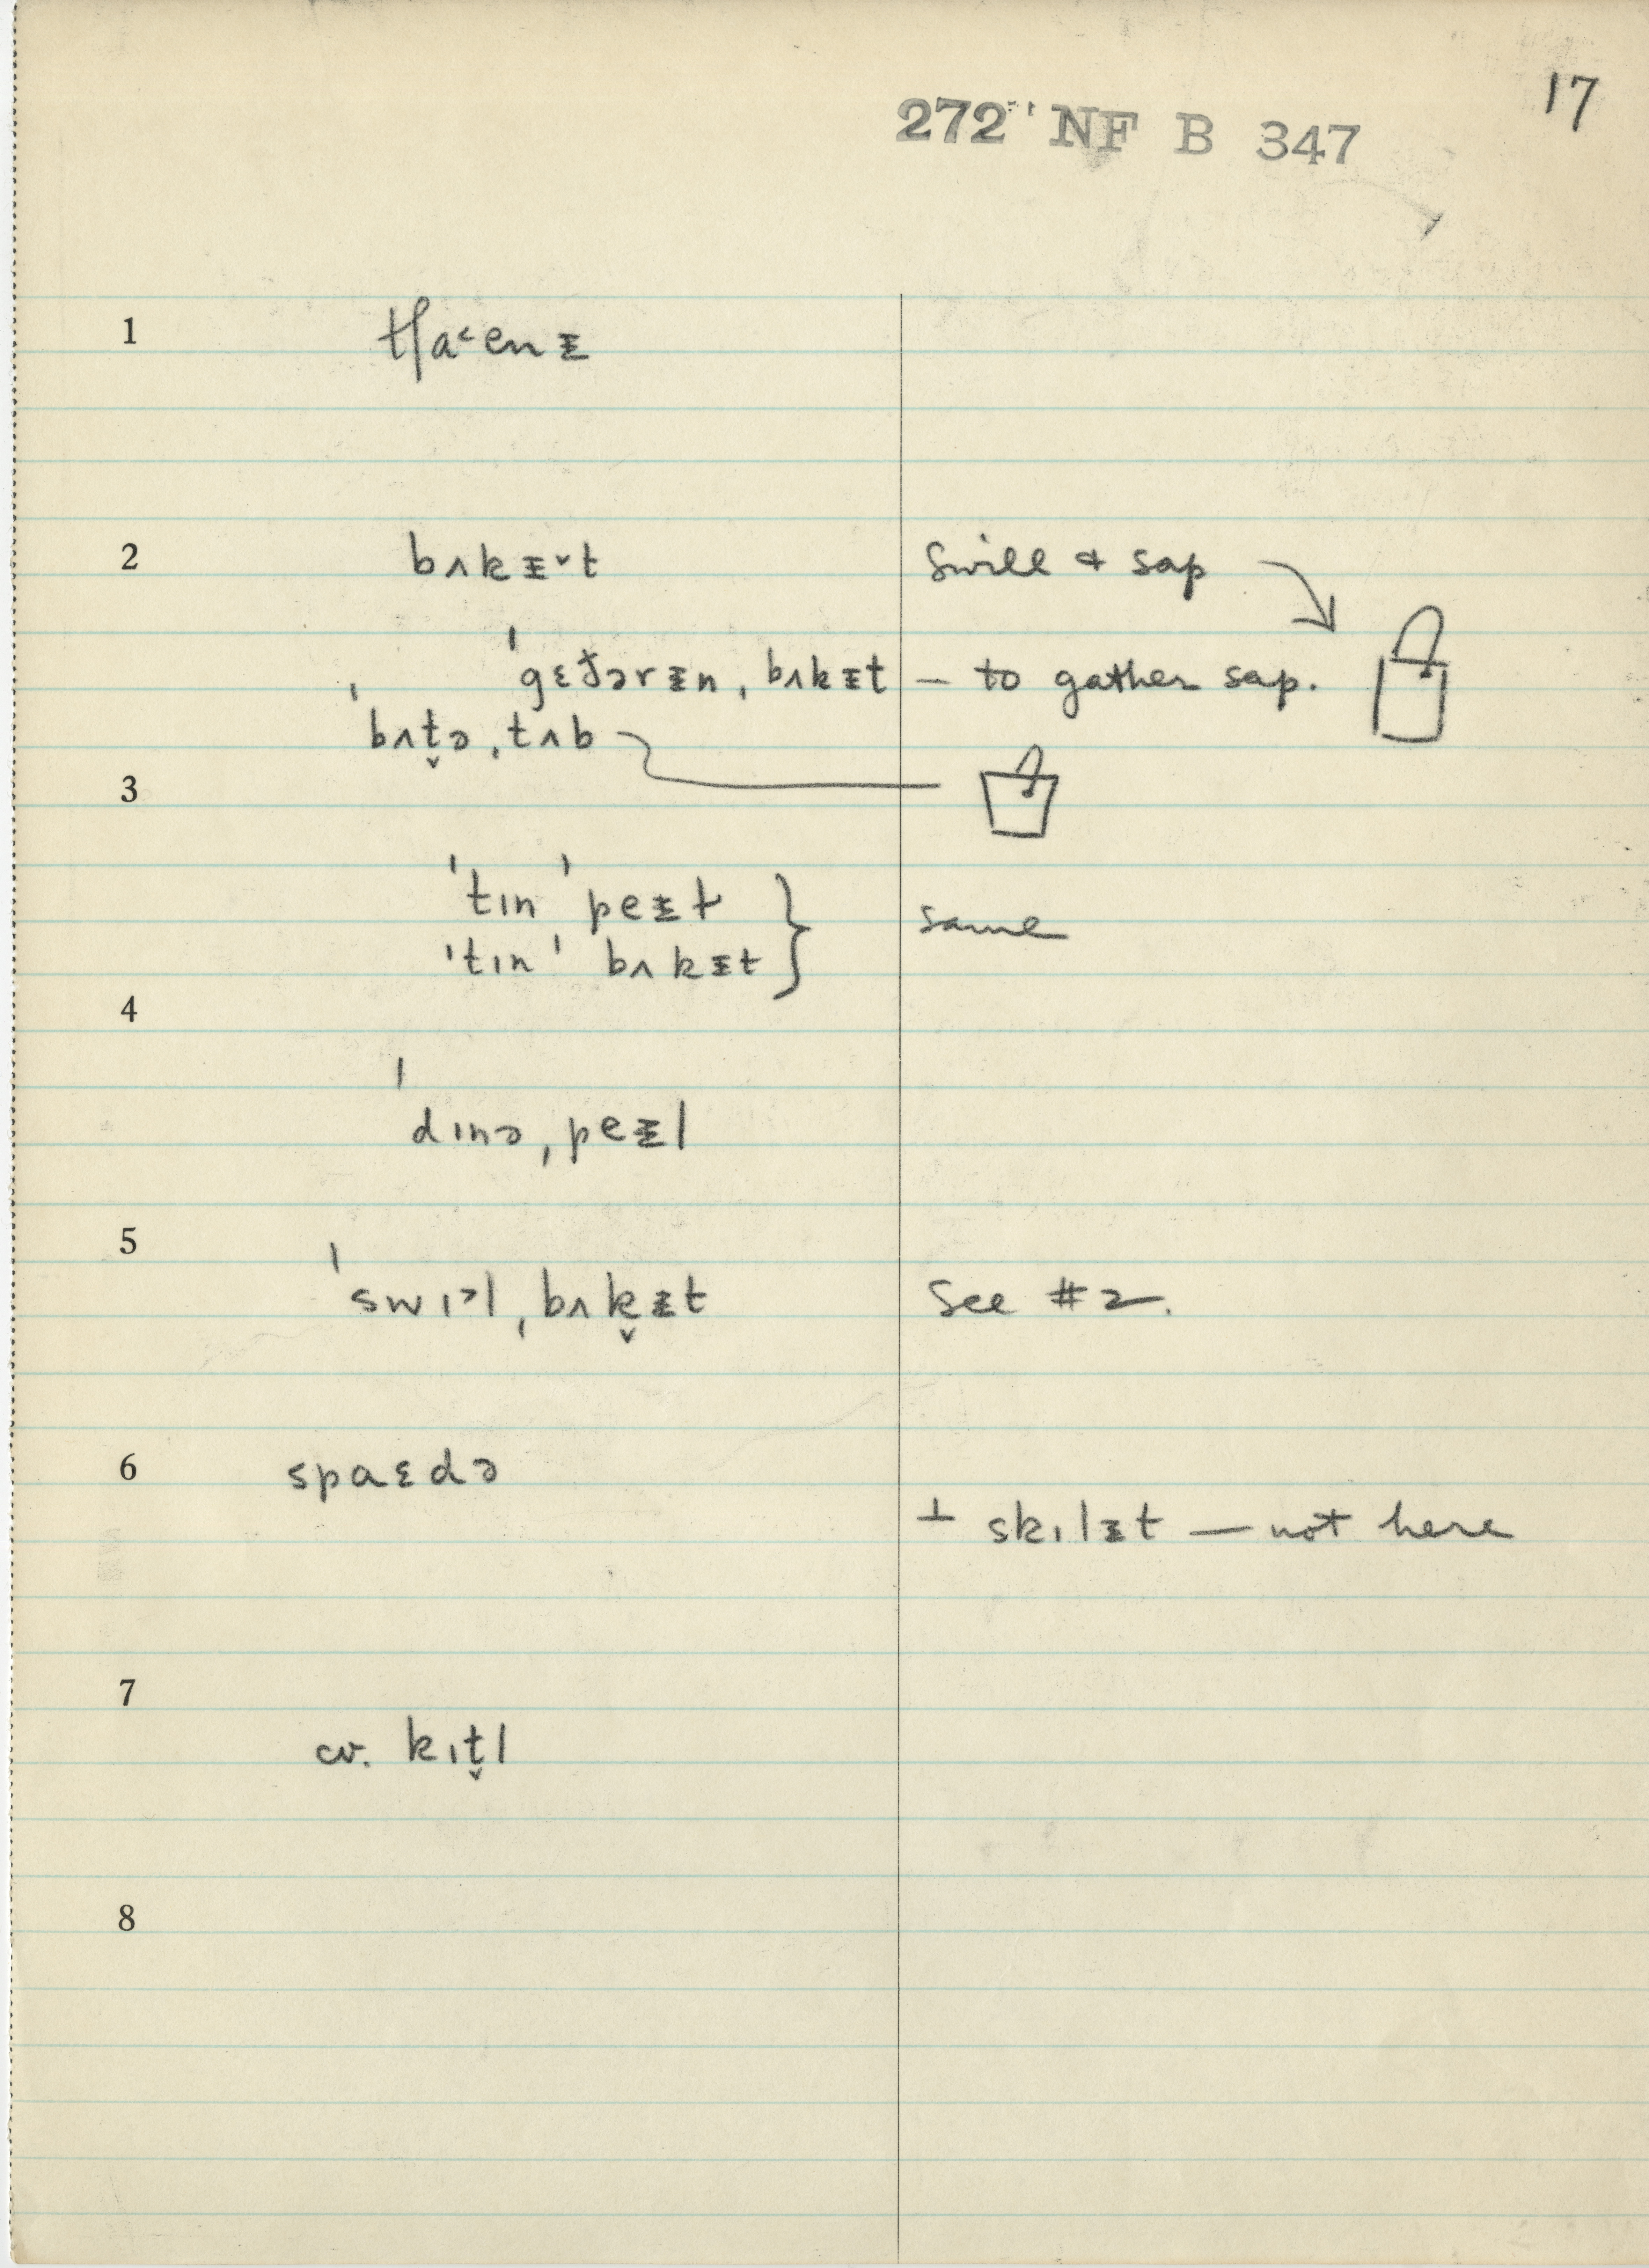 17
272 NF B 347
1 tʃa˂enᵻ
2 bʌkᵻ˅t swill & sap
ˈgɛðərᵻn ˌbʌkᵻt — to gather sap.
ˈbʌt̬ə ˌtʌb
3
ˈtɪn ˈpeᵻt same
ˈtɪn ˈbʌkᵻt
4
ˈdɪnə ˌpeᵻl
5
ˈswɪ˃l ˌbʌk̬ᵻt See #2.
6 spaɛdə
⊥ skɪlᵻt — not here
7
cv. kɪt̬l
8